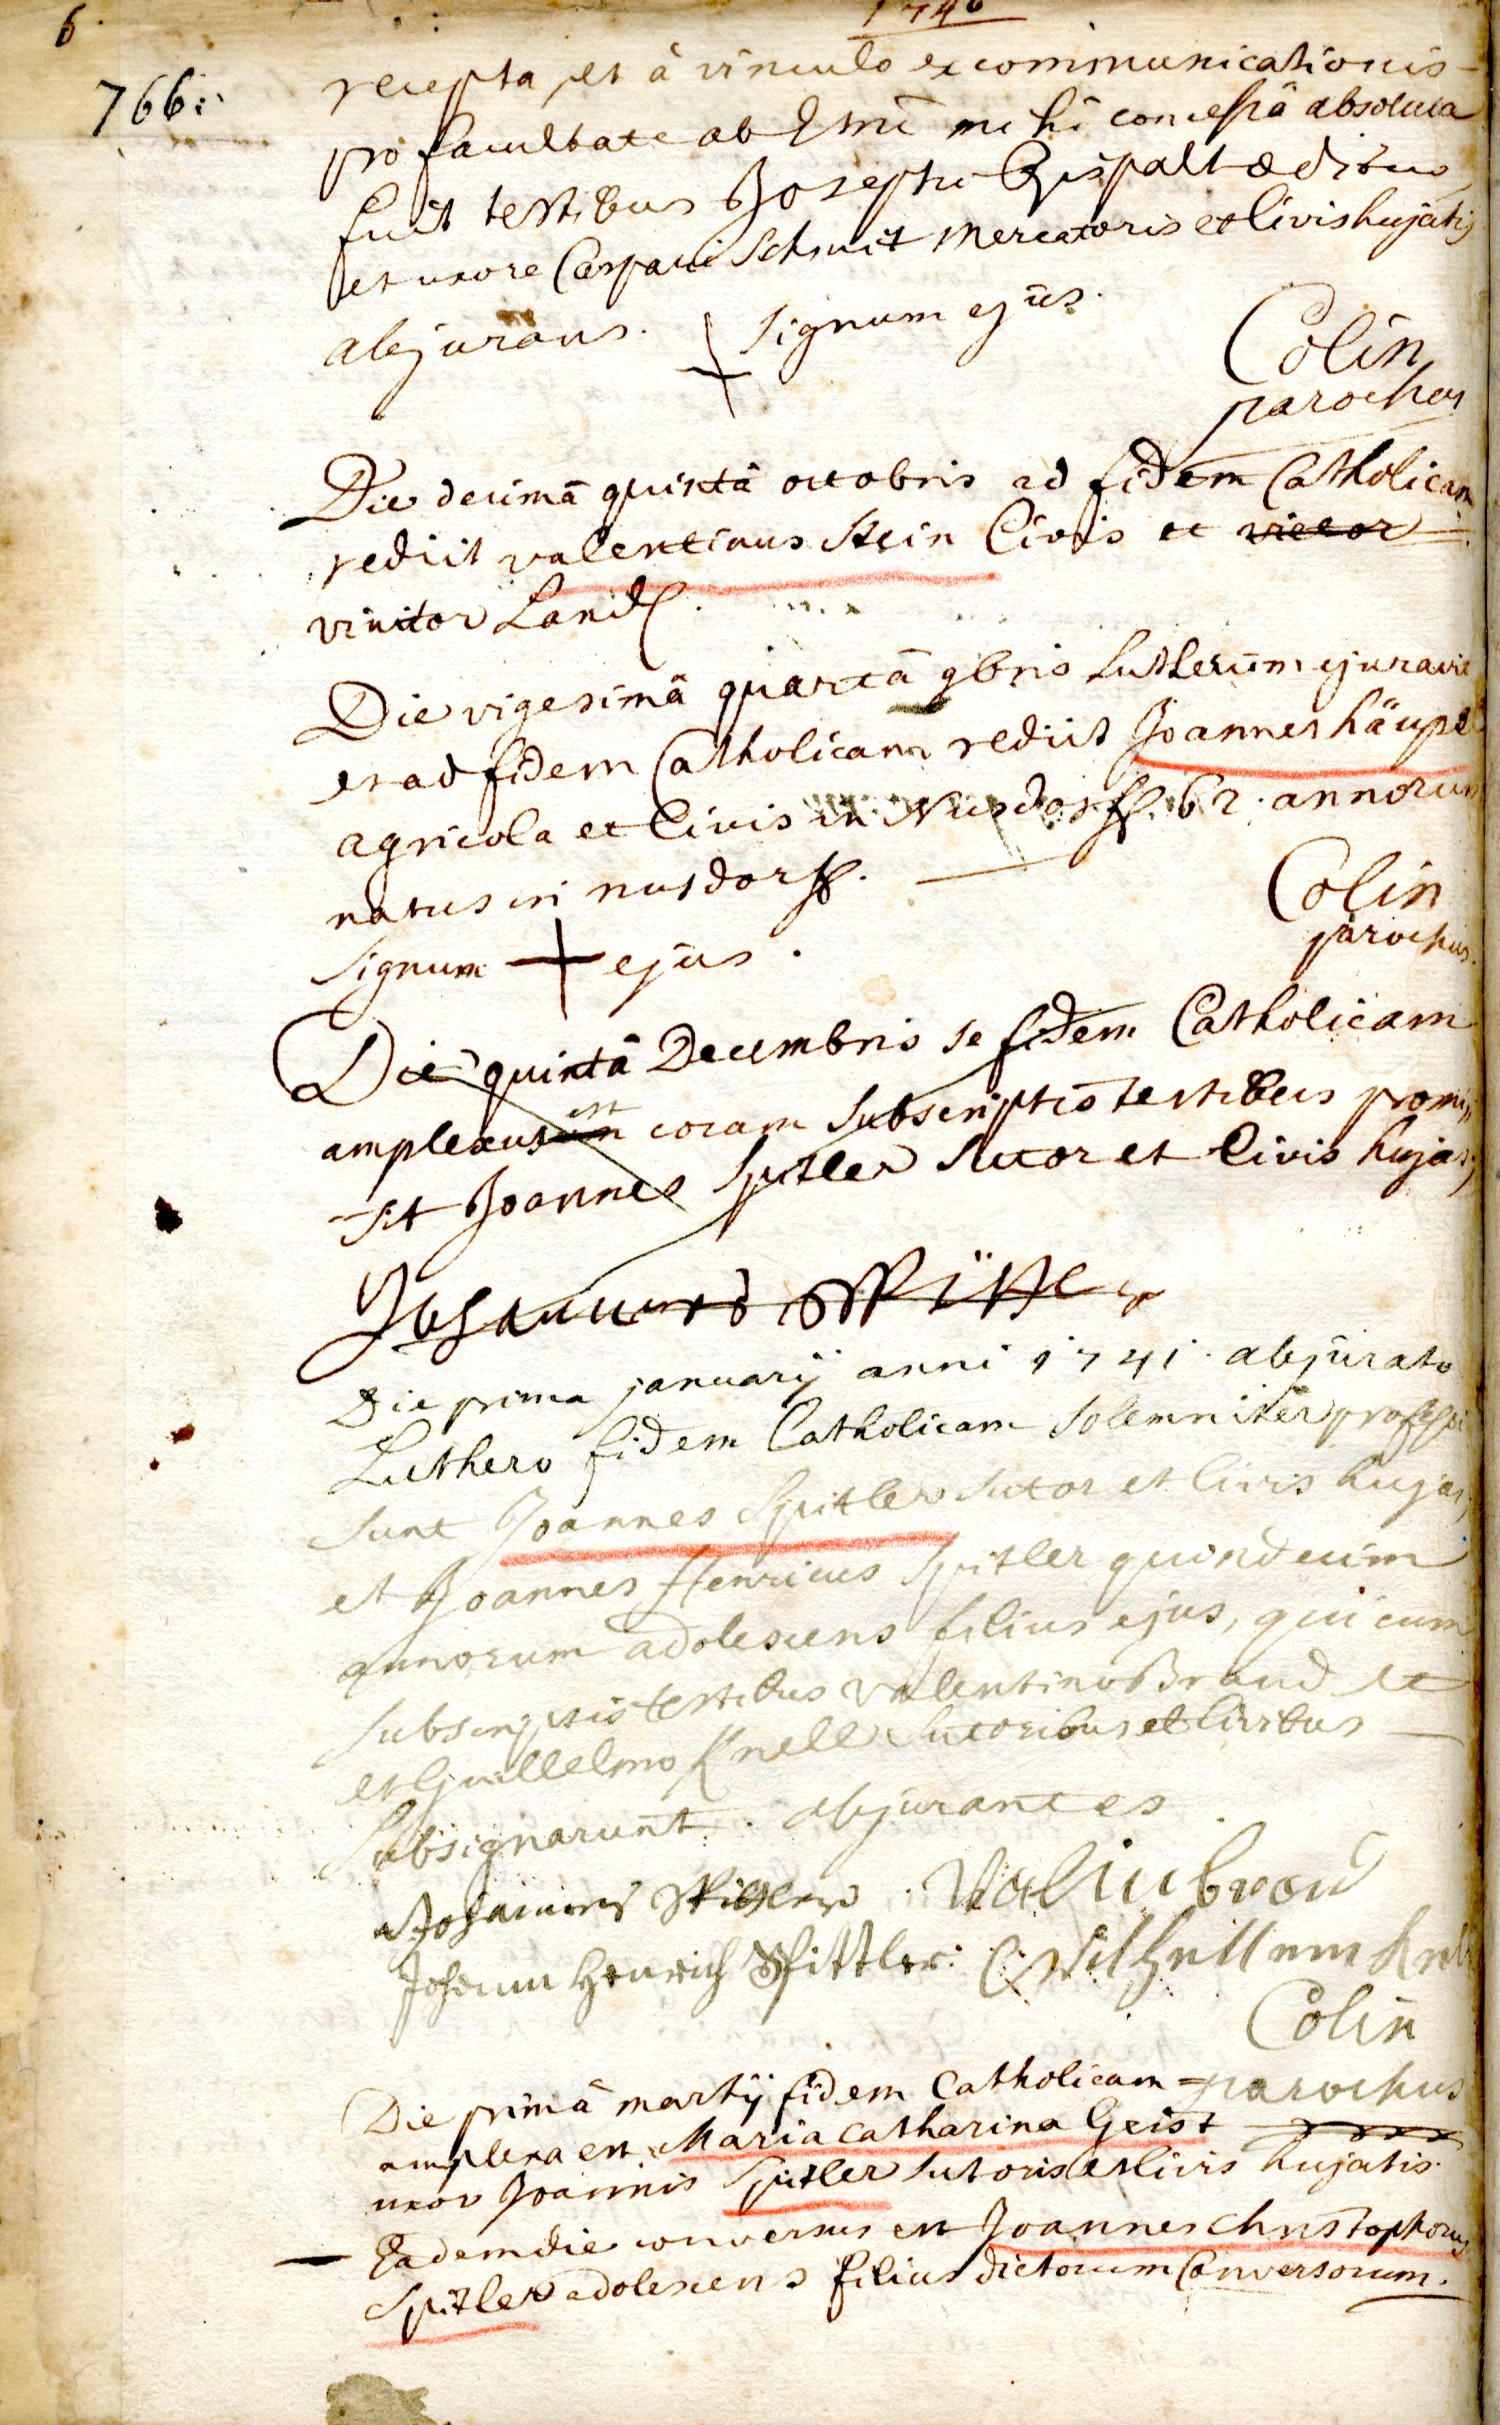 6.
1740
766:
recepta, et à vinculo excommunicationis
pro facultate ab Emi mihi concessâ absoluta
fuit testibus Josepho aedituo
et uxore Caspari Schmit mercatoris et Civis hujatis
abjurans. signum ejus.
Colin
parochus
Die decimâ quintâ octobris ad fidem Catholicam
rediit valentinus Stein Civis et victor
vinitor Land
Die vigesimâ quartâ 9bris Lutherum ejuravit
et ad fidem Catholicam rediit Joannes häupel
agricola et Civis in Nusdorff. 62. annorum
natus in nusdorff.
Colin
parochus.
signum + ejus.
Die quintâ Decembris se fidem Catholicam
amplexus est coram subscriptis testibus promi
sit Joannes Spitler sutor et Civis hujas,
Johannes Spittler
Die prima januarij anni 1741. abjurato
Luthero fidem Catholicam solemniter professi
sunt Joannes Spitler sutor et Civis hujas,
et Joannes Henricus Spitler quindecim
annorum adolescens filius ejus, qui cum
subscriptis testibus valentino Brand et
et Guillelmo Knell sutoribus et Civibus
subsignarunt. abjurantes
Johannes Spitler Valtin brand
Johann Henrich Spittler. Wilhellem Knell
Colin
parochus
Die primâ martij fidem Catholicam =
amplexa est Maria Catharina Geist
uxor Joannis Spitler sutoris et Civis hujatis.
Eadem die conversus est Joannes Christophorus
Spitler adolescens filius dictorum Conversorum.